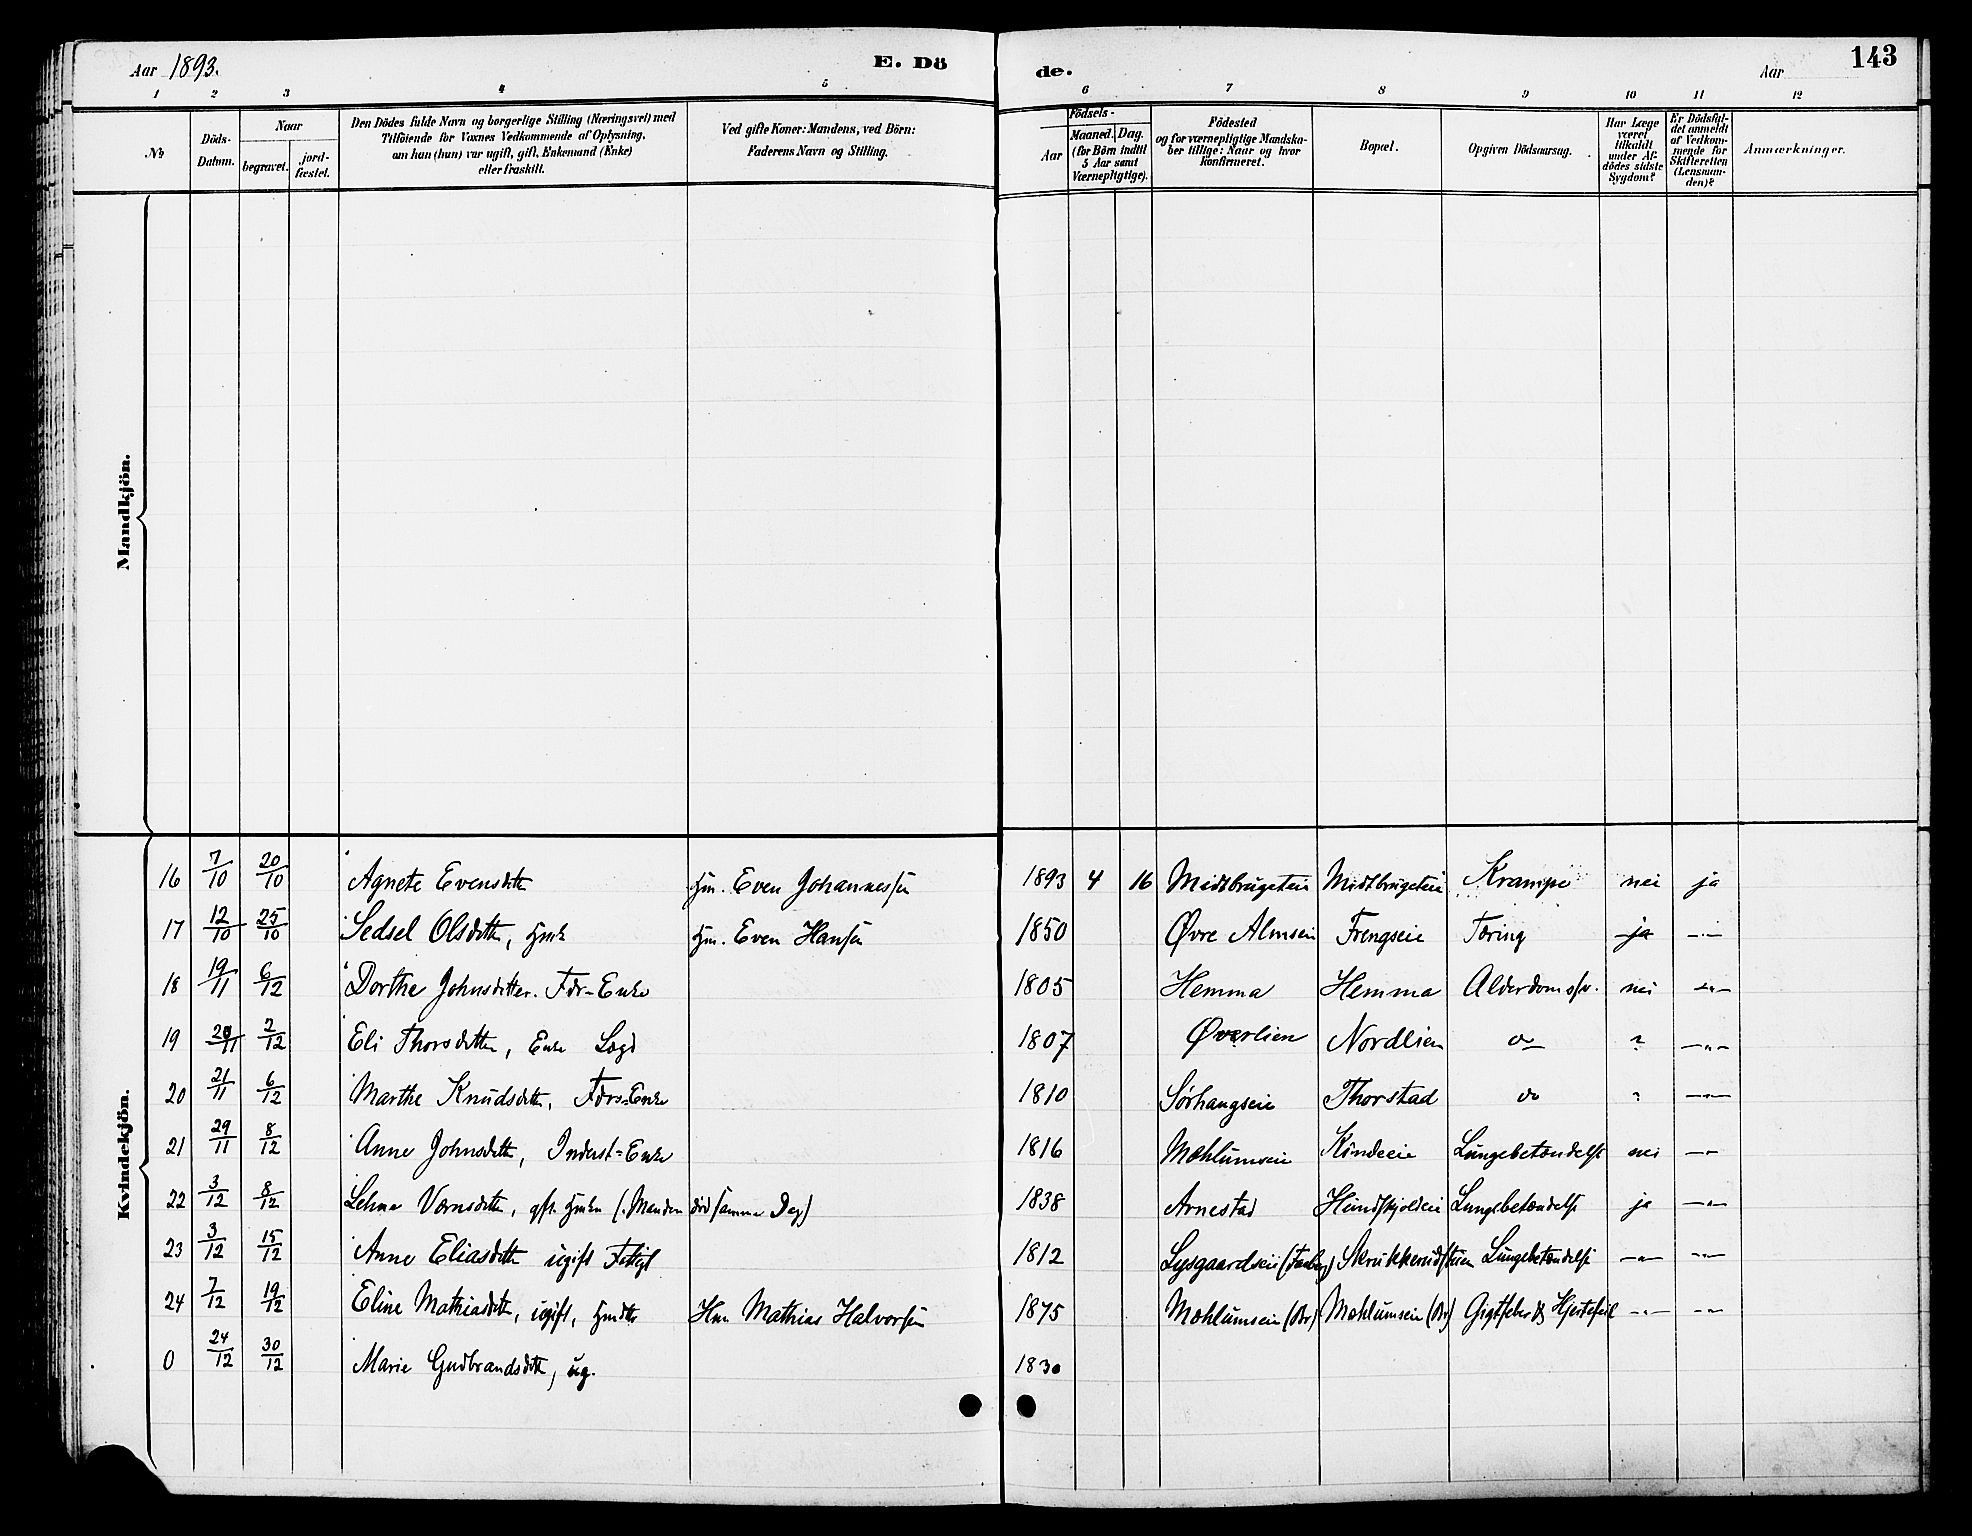 Aar 1893.
E. Dö
de.
Aar
143
1 2 3 4 5 6 7 8 9 10 11 12
№
Döds-
Datum.
Naar
begravet.
jord-
fæstet.
Den Dödes fulde Navn og borgerlige Stilling (Næringsvei) med
Tilföiende for Voxnes Vedkommende af Oplysning,
om han (hun) var ugift, gift, Enkemand (Enke)
eller fraskilt.
Ved gifte Koner: Mandens, ved Börn:
Faderens Navn og Stilling.
Födsels-
Aar
Maaned. Dag.
(for Börn indtil
5 Aar samt
Værnepligtige).
Födested
og for værnepligtige Mandska-
ber tillige: Naar og hvor
konfirmeret.
Bopæl.
Opgiven Dödsaarsag.
Har Læge
været
tilkaldt
under Af-
dödes sidste
Sygdom?
Er Dödsfal-
det anmeldt
af Vedkom-
mende for
Skifteretten
(Lensman-
den)?
Anmærkninger.
Mandkjön.
Kvindekjön.
16 7/10 20/10 Agnete Evensdtter Hm. Even Johannessen 1893 4 16 Midtbrugeteie Midtbrugeteie Krampe nei ja
17 12/10 25/10 Sedsel Olsdtter, Hmk Hm. Even Hansen 1850 Øvre Almseie Frengseie Tæring ja -"-
18 19/11 6/12 Dorthe Johnsdatter. Fdr-Enke 1805 Hemma Hemma Alderdomssv. nei -"-
19 20/11 7/12 Eli Thorsdatter, Enke Lægd 1807 Øverlien Nordlien do ? -"-
20 21/11 6/12 Marthe Knudsdtter, Fdrs-Enke 1810 Sörhaugseie Thorstad do ? -"-
21 29/11 8/12 Anne Johnsdtter, Inderst-Enke 1816 Mæhlumseie Kindeeie Lungebetændelse nei -"-
22 3/12 8/12 Lehne gft. (Manden död samme Dag) 1838 Arnestad Lungebetændelse ja -"-
23 3/12 15/12 Anne Eliasdtter ugift 1812 Skrukkerudstuen Lungebetændelse -"- -"-
24 7/12 19/12 Eline Mathiasdtter, ugift, Hmdtr Hm. Mathias Halvorsen 1875 Mæhlumseie (Br) Mæhlumseie (Br) Gigtfeber & Hjertefeil -"- -"-
0 24/12 30/12 Marie Gudbrandsdtt, ug. 1830